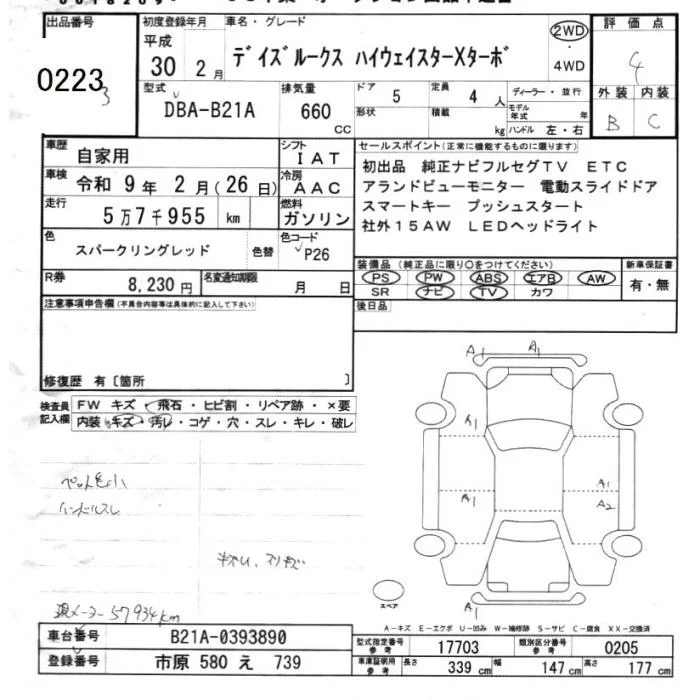 出品番号
0223
3
初度登録年月
平成
30 2月
車名・グレード
デイズルークス ハイウェイスターXターボ
2WD
・
4WD
評価点
4
外装 内装
B C
型式
DBA-B21A
排気量
660
CC
ドア
5
形状
定員
4 人
積載
kg
ディーラー・並行
モデル年式 年
ハンドル 左・右
車歴
自家用
シフト
IAT
車検
令和 9年 2月(26日)
冷房
AAC
走行
5万7千955 km
燃料
ガソリン
色
スパークリングレッド
色替
色コード
P26
R券
8,230円
名変通知期限
月 日
セールスポイント(正常に機能するものに限ります)
初出品 純正ナビフルセグTV ETC
アランドビューモニター 電動スライドドア
スマートキー プッシュスタート
社外15AW LEDヘッドライト
装備品(純正品に限り○をつけてください)
PS PW ABS エアB AW
SR ナビ TV カワ
新車保証書
有・無
後日品
注意事項申告欄(不具合内容等は具体的に記入して下さい)
修復歴 有〔箇所 〕
検査員
記入欄
FW キズ・飛石・ヒビ割・リペア跡・×要
内装 キズ・汚レ・コゲ・穴・スレ・キレ・破レ
ハンドルスレ
現メーター57934km
A1
A1
A1
A1
A1
A2
A1
スペア
A-キズ E-エクボ U-凹み W-補修跡 S-サビ C-腐食 XX-交換済
車台番号
B21A-0393890
登録番号
市原 580 え 739
型式指定番号
参考
17703
類別区分番号
参考
0205
車庫証明用
参考
長さ
339 cm
幅
147 cm
高さ
177 cm